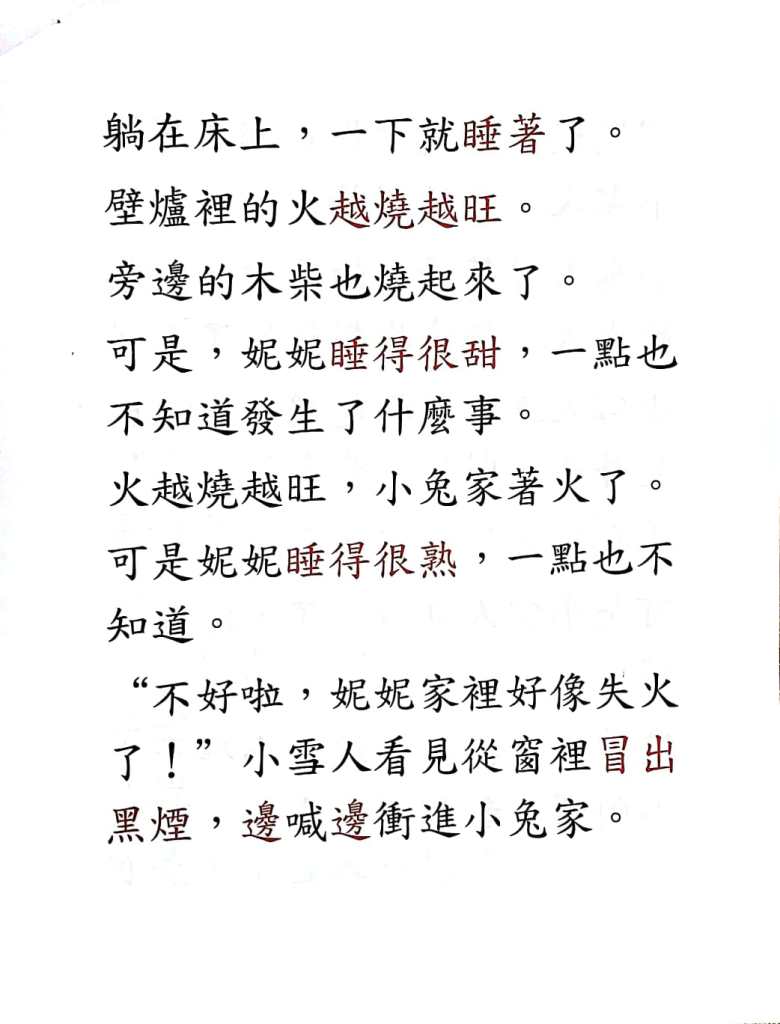 躺在床上，一下就睡著了。
壁爐裡的火越燒越旺。
旁邊的木柴也燒起來了。
可是，妮妮睡得很甜，一點也
不知道發生了什麼事。
火越燒越旺，小兔家著火了。
可是妮妮睡得很熟，一點也不
知道。
“不好啦，妮妮家裡好像失火
了！”小雪人看見從窗裡冒出
黑煙，邊喊邊衝進小兔家。